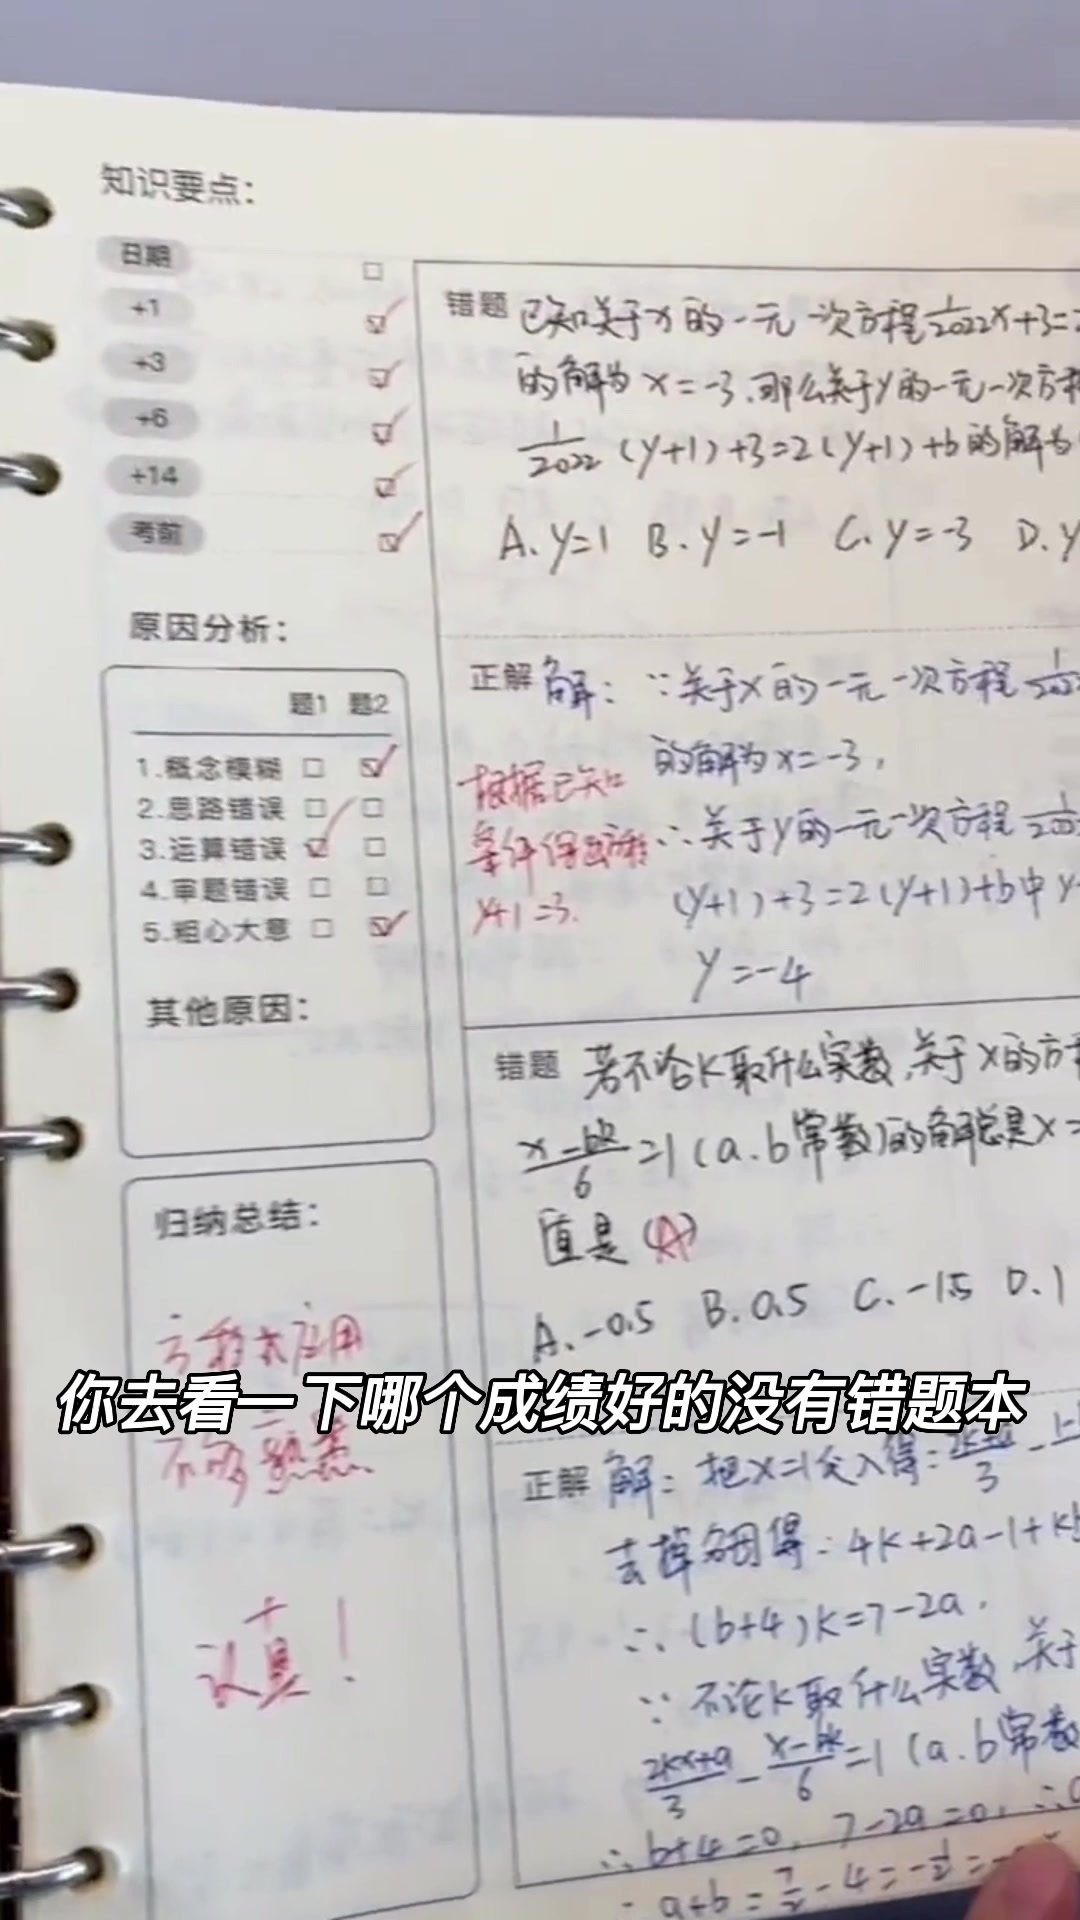 知识要点：
日期
+1
+3
+6
+14
考前
原因分析：
题1 题2
1.概念模糊
2.思路错误
3.运算错误
4.审题错误
5.粗心大意
其他原因：
归纳总结：
不够熟悉
认真！
错题 已知关于x的一元一次方程1/2022x+3=2
的解为x=-3.那么关于y的一元一次方程
1/2022(y+1)+3=2(y+1)+b的解为
A.y=1 B.y=-1 C.y=-3 D.y
正解 解：∵关于x的一元一次方程1/2022
的解为x=-3，
根据已知
条件得出
y+1=3.
∴关于y的一元一次方程1/202
(y+1)+3=2(y+1)+b中y
y=-4
错题 若不论k取什么实数，关于x的方
x-bk/6=1(a.b常数)的解总是x=
值是(A)
A.-0.5 B.0.5 C.-1.5 D.1
你去看一下哪个成绩好的没有错题本
正解 解：把x=1代入得：2k+a/3-1-
去掉分母得：4k+2a-1+kb
∴(b+4)k=7-2a.
∵不论k取什么实数，关于
2kx+a/3-x-bk/6=1(a.b常数
∴b+4=0，7-2a=0，∴
∴a+b=7/2-4=-1/2=-